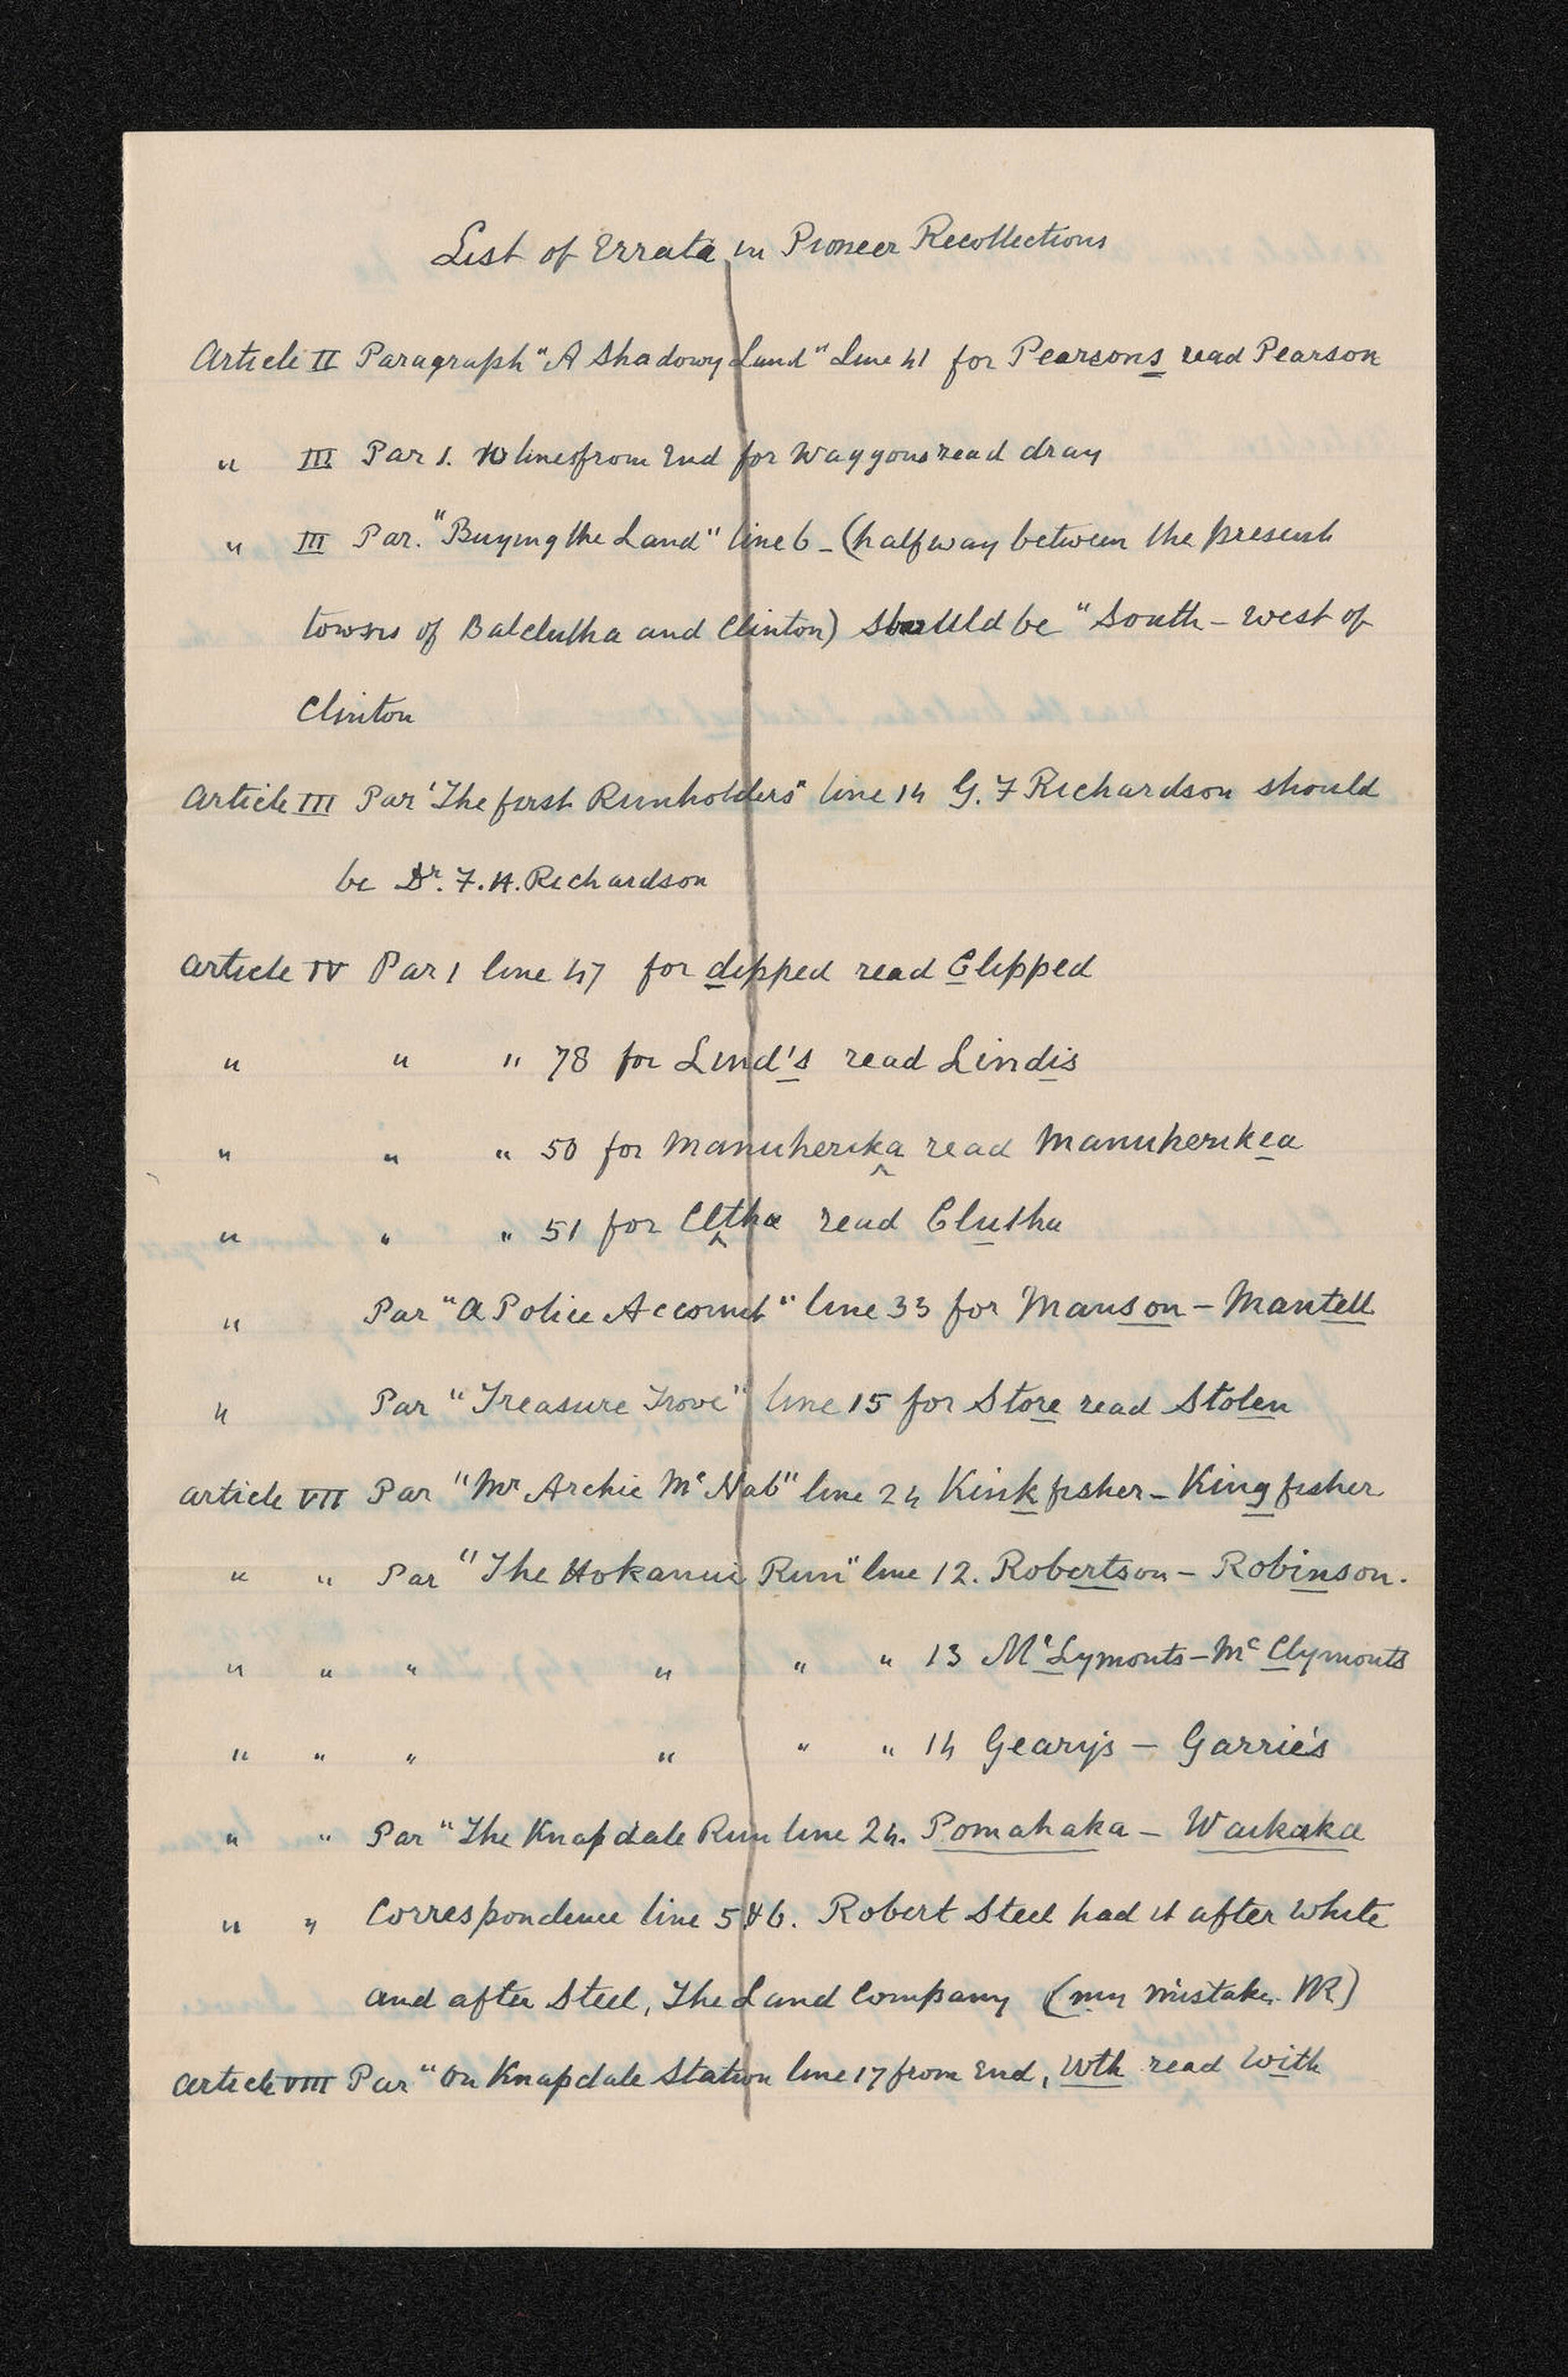 List of Errata in Pioneer Recollections
Article II Paragraph "A Shadowy Land" Line 41 for Pearsons read Pearson
" III Par 1. 10 lines from End for Waggons read dray
" III Par. "Buying the Land" line 6 - (halfway between the present
towns of Balclutha and Clinton) should be "South-west of
Clinton
Article III Par 'The first Runholders" line 14 G. F Richardson should
be Dr. F. H. Richardson
Article IV Par 1 line 47 for dipped read Clipped
" " " 78 for Lind's read Lindis
" " " 50 for Manuherika read Manuherikea
" " " 51 for Cltha read Clutha
" Par "A Police Account" line 33 for Manson - Mantell
" Par "Treasure Trove" line 15 for Store read Stolen
Article VII Par "Mr Archie Mc Nab" line 24 Kinkfisher - Kingfisher
" " Par "The Hokanui Run" line 12. Robertson - Robinson.
" " " " " " 13 McLymonts - Mc Clymonts
" " " " " " 14 Geary's - Garrie's
" " Par "The Knapdale Run line 24. Pomahaka - Waikaka
" " Correspondence line 5 & 6. Robert Steel had it after White
and after Steel, The Land Company (my mistake. MR)
Article VIII Par "On Knapdale Station line 17 from End, Wth read With